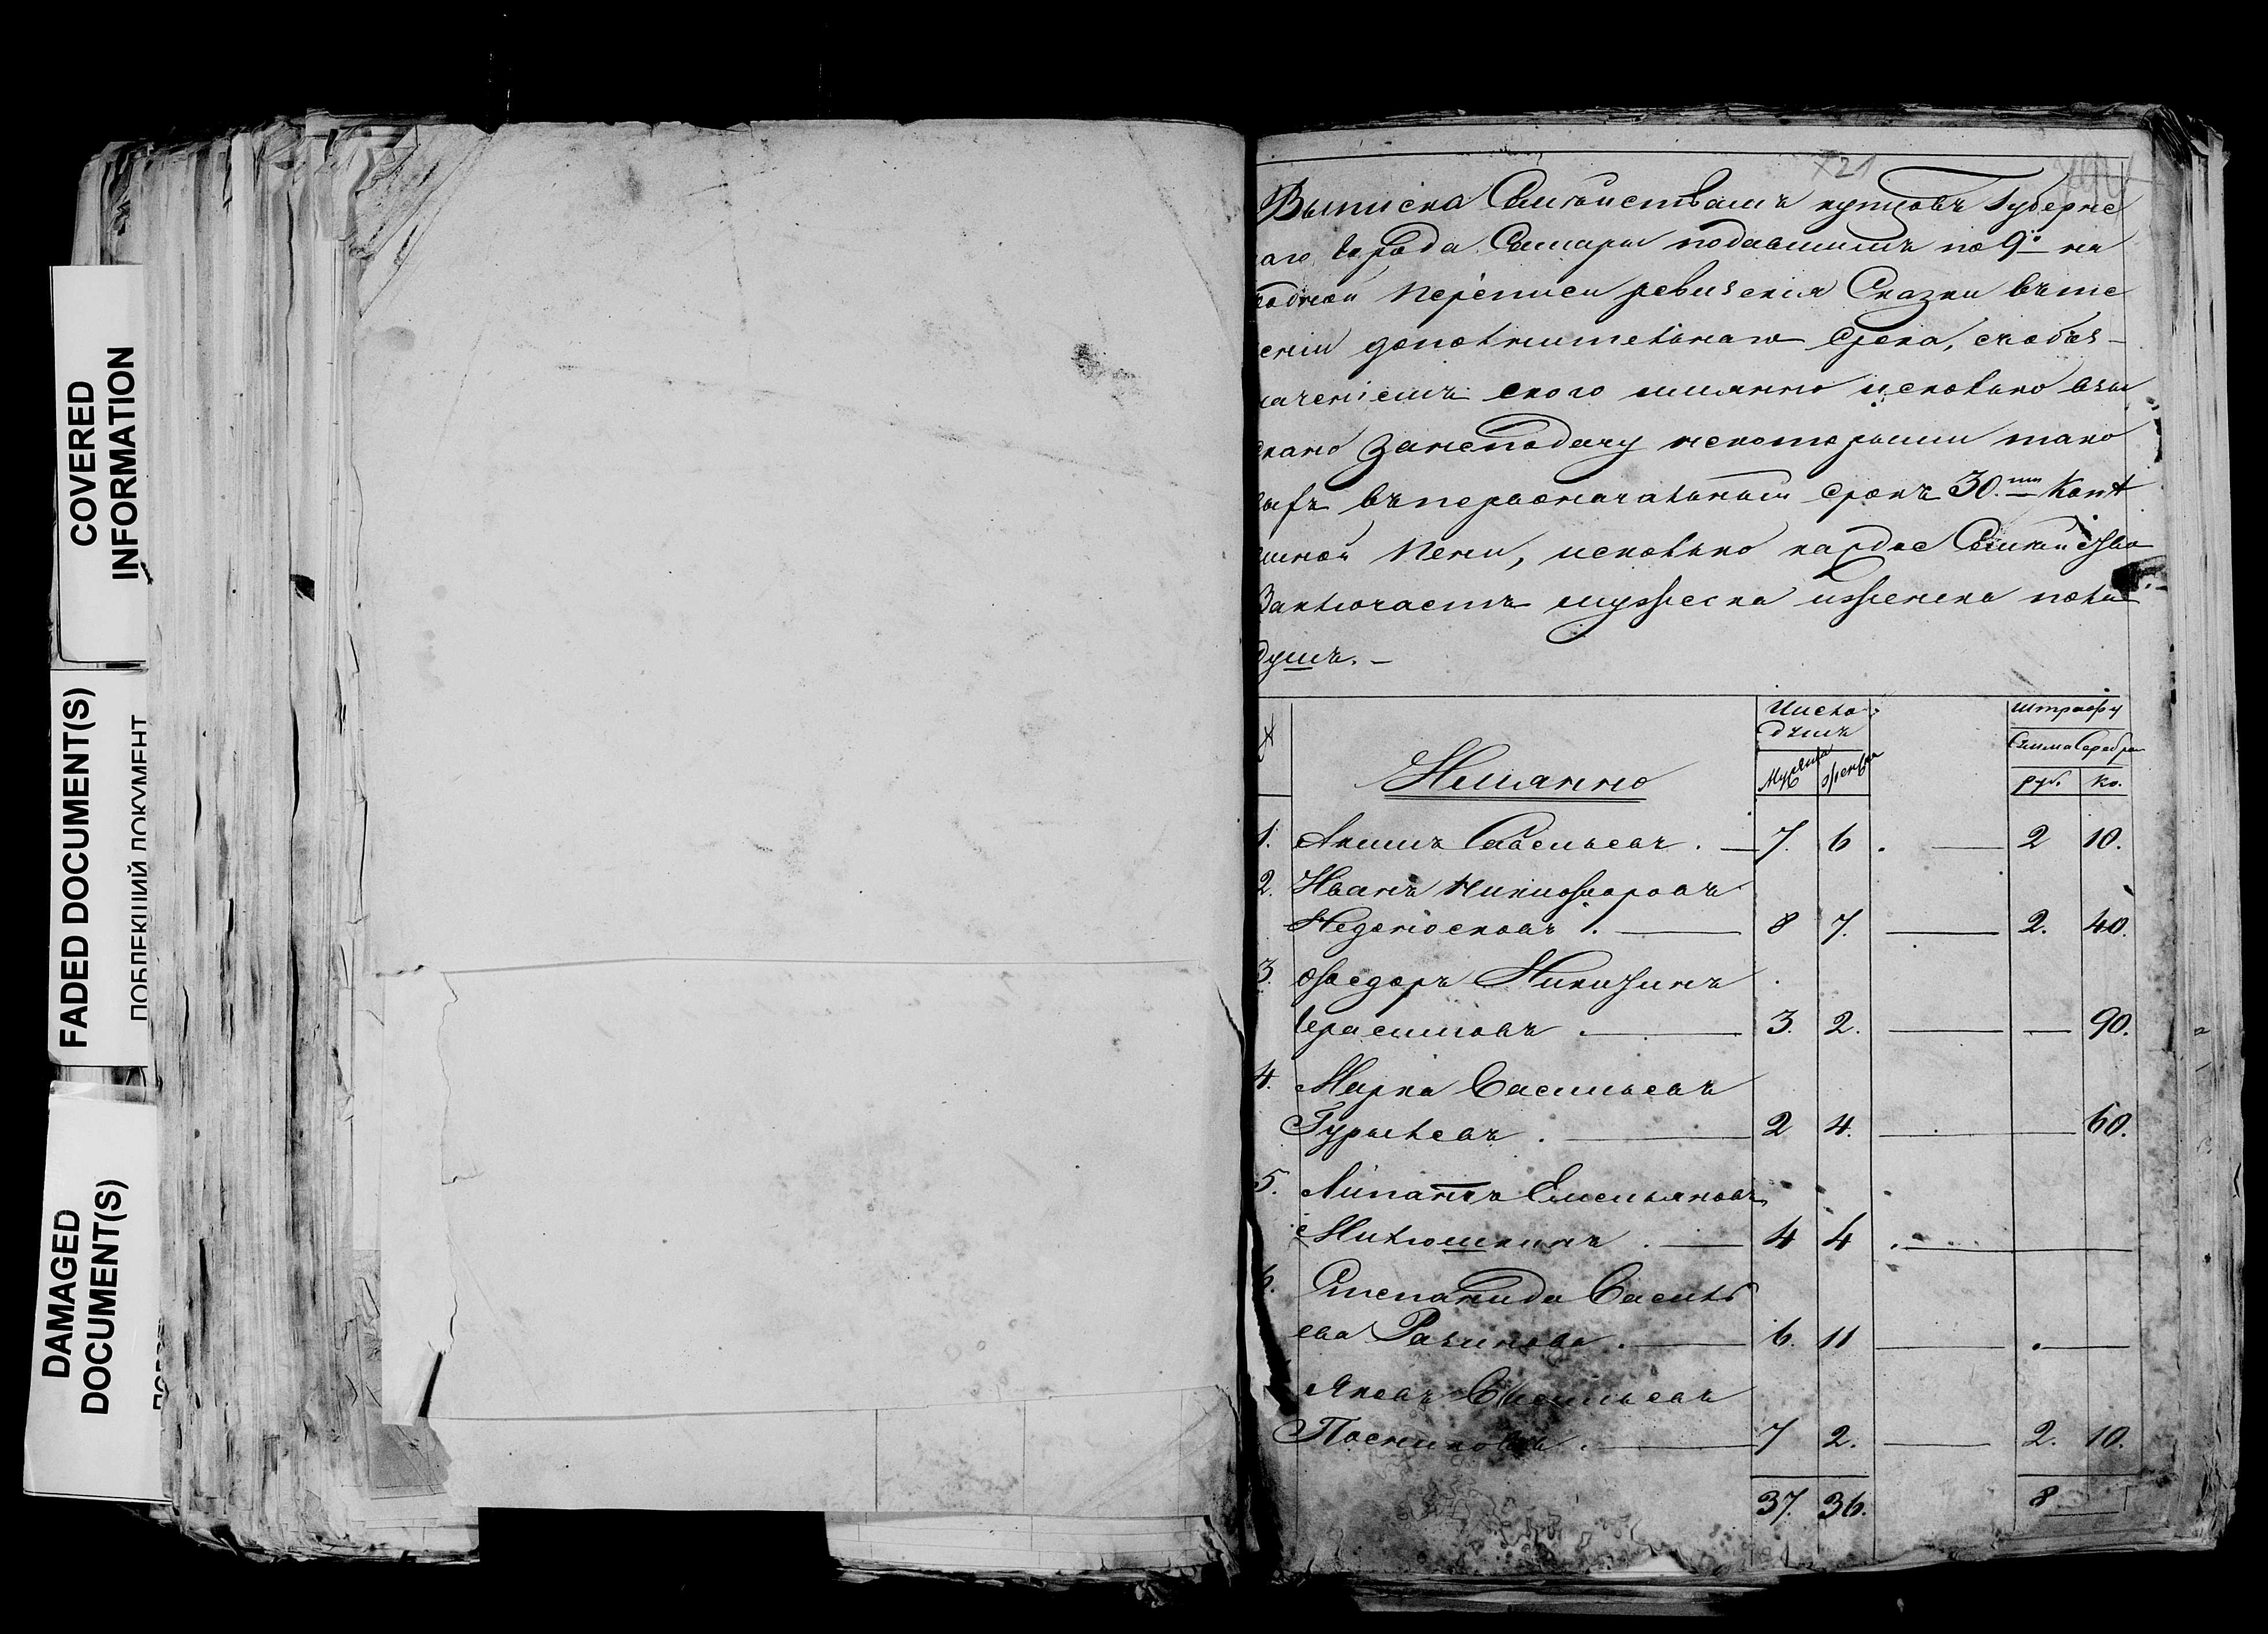 COVERED
INFORMATION
FADED DOCUMENT(S)
ПОБЛЕКШИЙ ДОКУМЕНТ
DAMAGED
DOCUMENT(S)
721
Выписка Семѣйствамъ купцовъ Губернс
каго города Самары подавшимъ по 9й на
родной переписи ревизскія Сказки въ те
ченіи дополнительнаго срока, съ обоз-
наченіемъ кого имянно и сколько взы
скано за неподачу некоторыми тако
выхъ въ первоначальный срокъ 30.ти копѣ
ечной пени, и сколько каждое Семейство
Заключаетъ мужеска и женска пола
душъ. –
№
Имянно
Число
душъ
Мужеска
женска
штрафу
Сумма Серебра
руб.
ко.
1. Акимъ Савельевъ . — 7. 6 . — 2 10.
2. Иванъ Никифоровъ
Недоносковъ . — 8 7. — 2. 40.
3. Федоръ Никитинъ
Герасимовъ . — 3. 2. — — 90.
4. Марка Васильевъ
Гурьевъ . — 2 4. — 60.
5. Липатъ Емельяновъ
Милюшкинъ . — 4 4 . —
6. Степанида Василь
ева Разинова . — 6. 11 — . —
Яковъ Васильевъ
Посниковъ . — 7 2. — 2. 10.
37. 36. 8 —